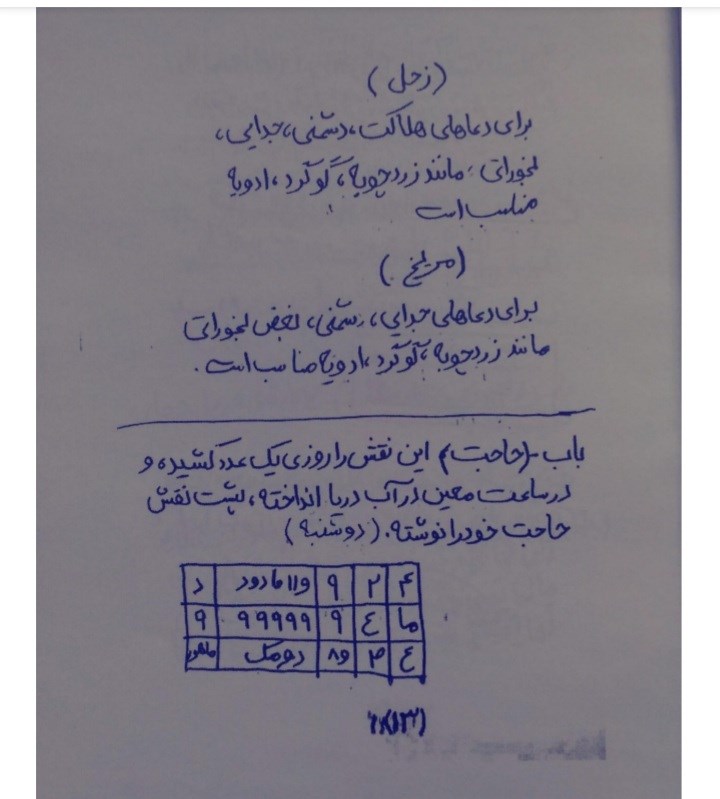 (زحل)
برای دعاهای هلاکت، دشمنی، جدایی،
بخوراتی: مانند زردچوبه، گوگرد، ادویه
مناسب است
(مریخ)
برای دعاهای جدایی، دشمنی، بغض بخوراتی
مانند زردچوبه، گوگرد، ادویه مناسب است.
باب-(حاجت) این نقش را روزی یک عدد کشیده و
در ساعت معین در آب دریا انداخته، پشت نقش
حاجت خود را نوشته. (دوشنبه)
۴ ۲ ۹ د
ما ع ۹ ۹۹۹۹۹ ۹
ع ۳ ۸۹